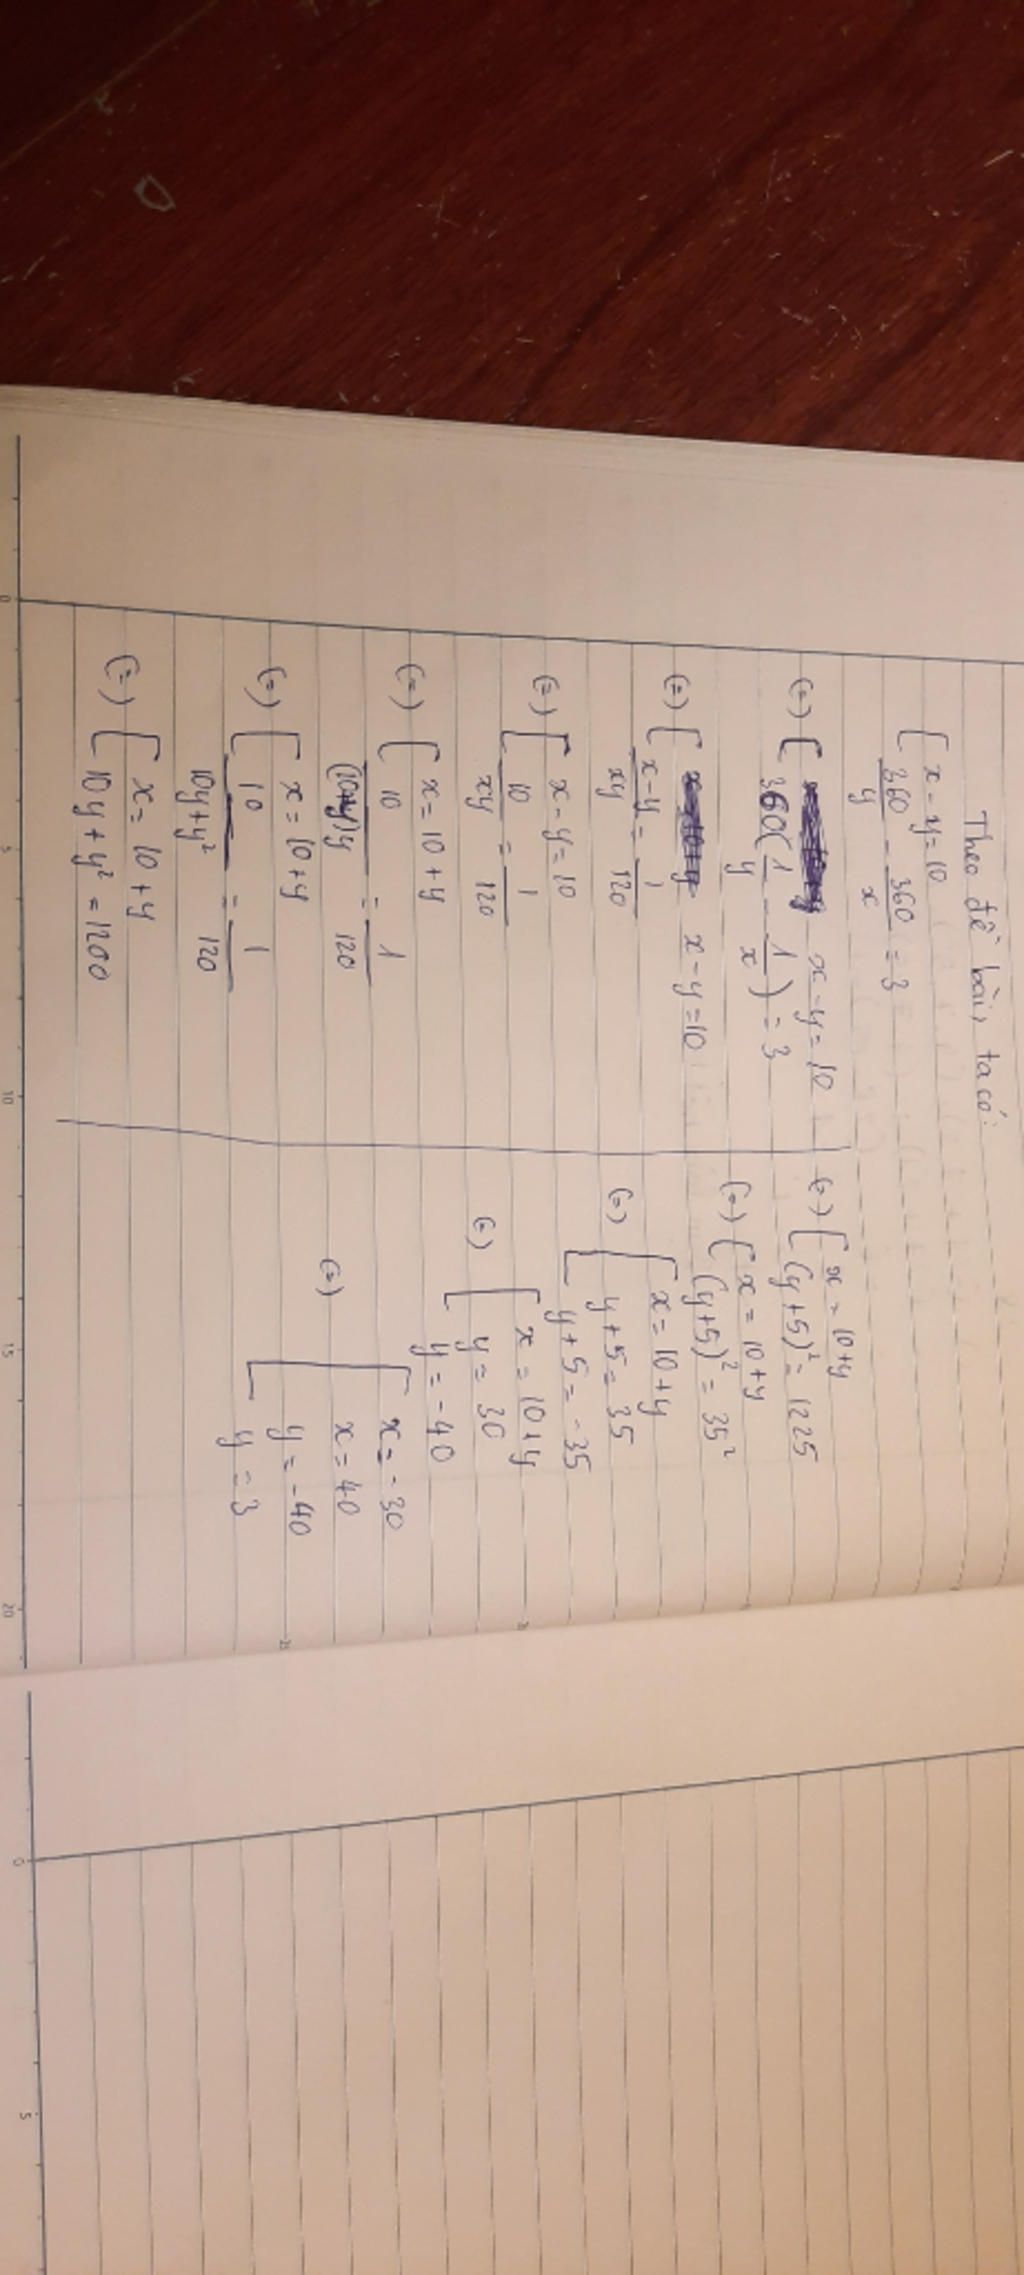 Theo đề bài, ta có:
{ x - y = 10
360/y - 360/x = 3
(=) { x - y = 10
360(1/y - 1/x) = 3
(=) { x - y = 10
x-y/xy = 1/120
(=) [ x - y = 10
10/xy = 1/120
(=) { x = 10 + y
10/(10+y)y = 1/120
(=) [ x = 10 + y
10/10y + y² = 1/120
(=) [ x = 10 + y
10y + y² = 1200
(=) [ x = 10 + y
(y + 5)² = 1225
(=) [ x = 10 + y
(y + 5)² = 35²
(=) [ x = 10 + y
y + 5 = 35
y + 5 = -35
(=) [ x = 10 + y
y = 30
y = -40
(=) [ x = -30
x = 40
y = -40
y = 3
0
5
10
15
20
0
5